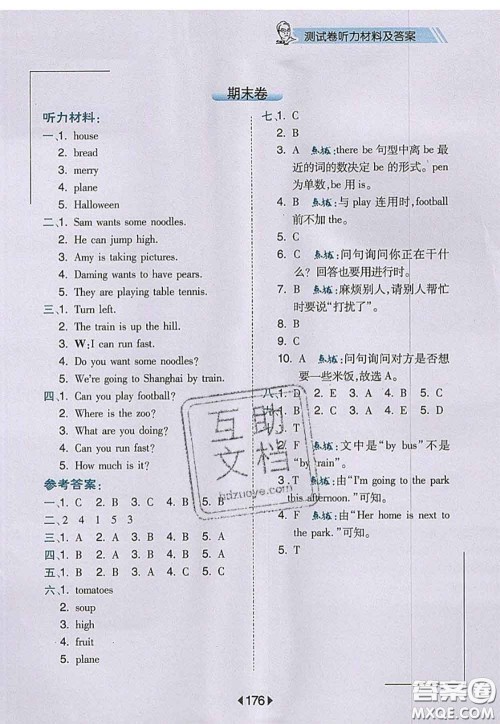 测试卷听力材料及答案
期末卷
听力材料:
一、1. house
2. bread
3. merry
4. plane
5. Halloween
二、1. Sam wants some noodles.
2. He can jump high.
3. Amy is taking pictures.
4. Daming wants to have pears.
5. They are playing table tennis.
三、1. Turn left.
2. The train is up the hill.
3. W: I can run fast.
4. Do you want some noodles?
5. We're going to Shanghai by train.
四、1. Can you play football?
2. Where is the zoo?
3. What are you doing?
4. Can you run fast?
5. How much is it?
参考答案:
一、1. C 2. B 3. C 4. B 5. B
二、2 4 1 5 3
三、1. A 2. B 3. A 4. B 5. A
四、1. A 2. B 3. B 4. B 5. A
五、1. B 2. B 3. A 4. C 5. C
六、1. tomatoes
2. soup
3. high
4. fruit
5. plane
七、1. C
2. B
3. A 点拨: there be 句型中离 be 最
近的词的数决定 be 的形式。pen
为单数, be 用 is。
4. B 点拨: 与 play 连用时, football
前不加 the。
5. C
6. C 点拨: 问句询问你正在干什
么？回答也要用进行时。
7. B 点拨: 麻烦别人,请别人帮忙
时要说“打扰了”。
8. B
9. C
10. A 点拨: 问句询问对方是否想
要一些米饭,故选 A。
八、1. D 2. E 3. A 4. B 5. C
2. F 点拨: 文中是“by bus”不是
“by train”。
3. T 点拨: 由“I'm going to the park
this afternoon.”可知。
4. F 点拨: 由“Her home is next to
the park.”可知。
5. T
互助
文档
bdzuoye.com
176
答案圈
MXQE.COM